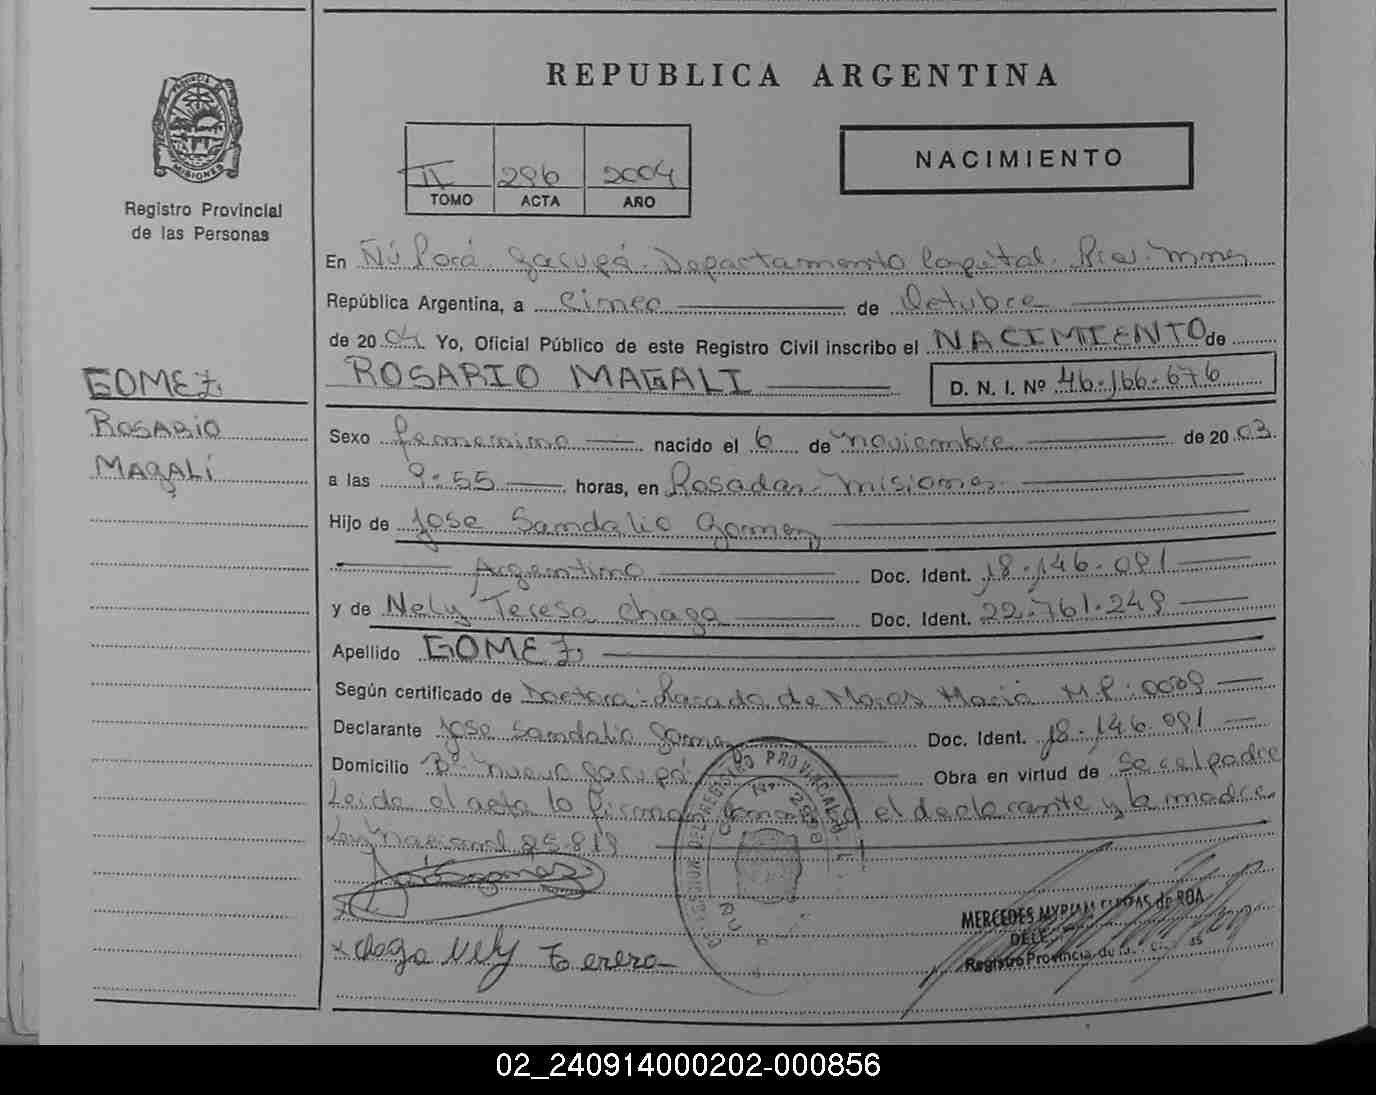 REPUBLICA ARGENTINA
MISIONES
Registro Provincial
de las Personas
II 296 2004
TOMO ACTA AÑO
NACIMIENTO
En Ñú Porá Garupá. Departamento Capital. Pcia. Mnes
República Argentina, a Cinco de Octubre
de 2004. Yo, Oficial Público de este Registro Civil inscribo el NACIMIENTO de
ROSARIO MAGALI
D. N. I. Nº 46.166.676
GOMEZ
ROSARIO
MAGALÍ
Sexo femenino nacido el 6 de noviembre de 2003.
a las 9:55 horas, en Posadas - Misiones
Hijo de Jose Sandalio Gomez
Argentino Doc. Ident. 18.146.091
y de Nely Teresa Chaga Doc. Ident. 22.761.249
Apellido GOMEZ
Según certificado de Doctora: de Maria M.P: 0089
Declarante Jose Sandalio Gomez Doc. Ident. 18.146.091
Domicilio Bº Nuevo Garupá Obra en virtud de Ser el padre
Leida el acta la firman conmigo el declarante y la madre.
Ley Nacional 25.819
MERCEDES MYRIAM de ROA
DELE
Registro Provincial de
x chaga Nely Terera
02_240914000202-000856